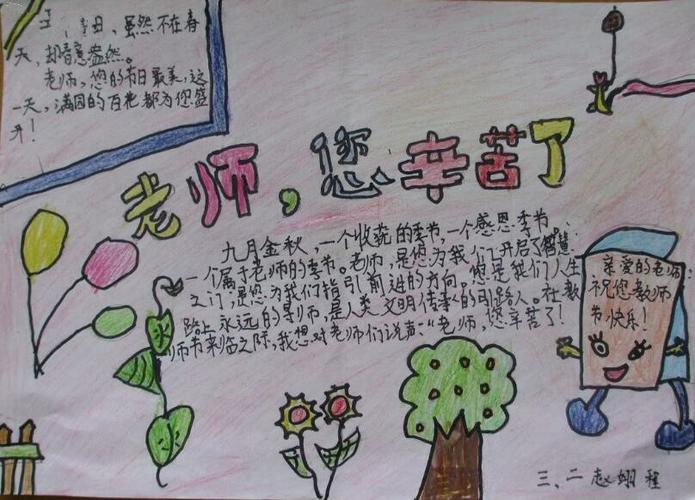 日、虽然不在春
天,却春意盎然。
老师,您的节日最美,这
一天,满园的百花都为您盛
开!
老师,您辛苦了
九月金秋,一个收获的季节,一个感恩季节,
一个属于老师的季节。老师,是您为我们开启了智慧
之门,是您为我们指引前进的方向。您是我们人生
路上永远的导师,是人类文明传承的引路人。在教
师节来临之际,我想对老师们说声:“老师,您辛苦了!
亲爱的老师,
祝您教师
节快乐!
三、二赵翊程